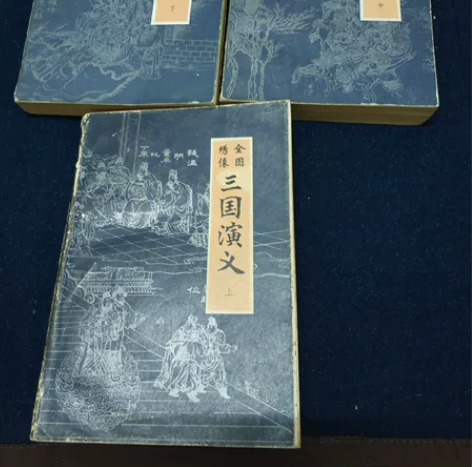 下
中
全图
绣像
三国演义
上